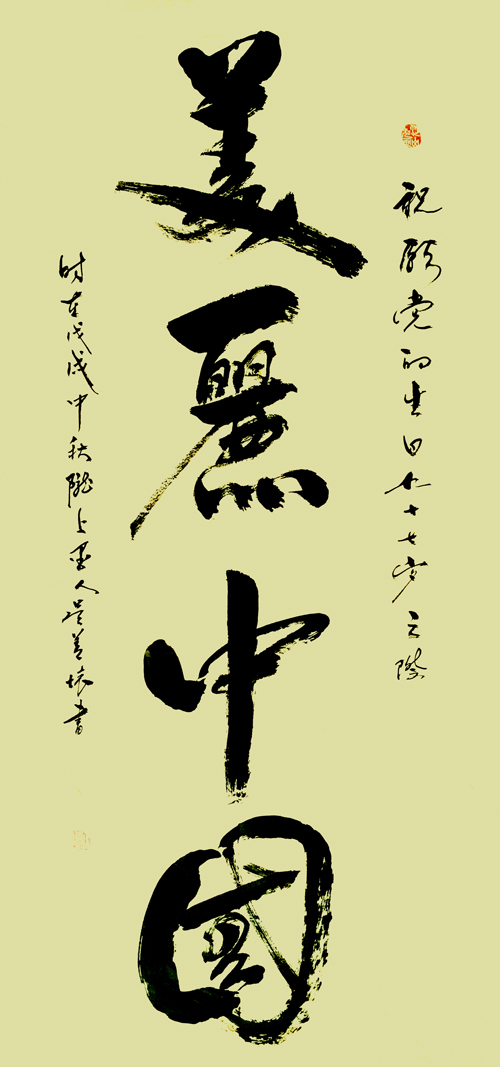 祝願党的生日九十七岁之際
美麗中國
时在戊戌中秋隴上墨人吴善懐書